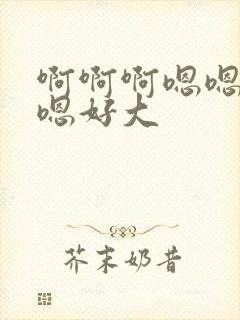 啊啊啊嗯嗯
嗯好大
芥末奶昔